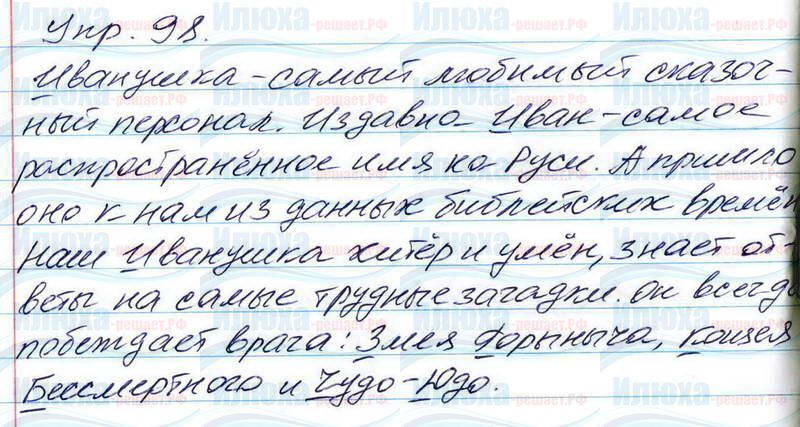 Упр. 98.
Иванушка - самый любимый сказоч-
ный персонаж. Издавно Иван - самое
распространённое имя на Руси. А пришло
оно к нам из данных библейских времён
Наш Иванушка хитёр и умён, знает от-
веты на самые трудные загадки. он всегда
побеждает врага: Змея Горыныча, Кощея
Бессмертного и Чудо-Юдо.